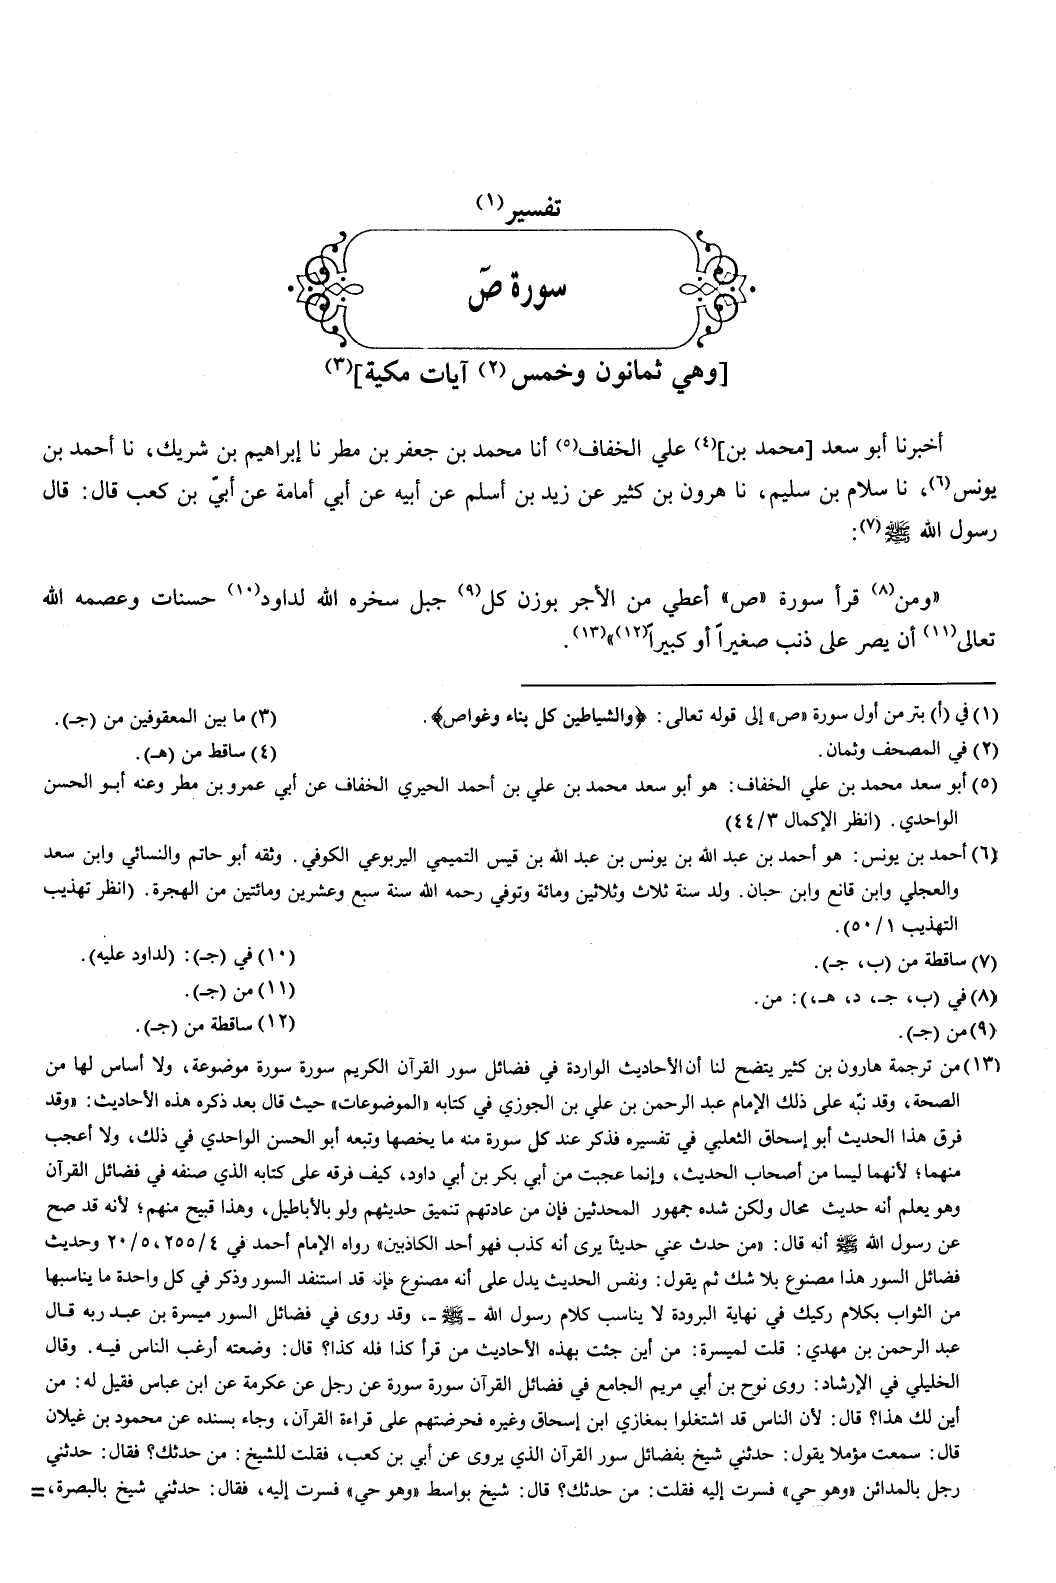 تفسير(١)
سورة صۤ
[وهي ثمانون وخمس(٢) آيات مكية](٣)
أخبرنا أبو سعد [محمد بن](٤) علي الخفاف(٥) أنا محمد بن جعفر بن مطر نا إبراهيم بن شريك، نا أحمد بن
يونس(٦)، نا سلام بن سليم، نا هرون بن كثير عن زيد بن أسلم عن أبيه عن أبي أمامة عن أبيّ بن كعب قال: قال
رسول الله ﷺ(٧):
«ومن(٨) قرأ سورة «ص» أعطي من الأجر بوزن كل(٩) جبل سخره الله لداود(١٠) حسنات وعصمه الله
تعالى(١١) أن يصر على ذنب صغيراً أو كبيراً(١٢)»(١٣).
(١) في (أ) بتر من أول سورة «ص» إلى قوله تعالى: ﴿والشياطين كل بناء وغواص﴾.
(٣) ما بين المعقوفين من (جـ).
(٢) في المصحف وثمان.
(٤) ساقط من (هـ).
(٥) أبو سعد محمد بن علي الخفاف: هو أبو سعد محمد بن علي بن أحمد الحيري الخفاف عن أبي عمرو بن مطر وعنه أبو الحسن
الواحدي. (انظر الإكمال ٣/ ٤٤)
(٦) أحمد بن يونس: هو أحمد بن عبد الله بن يونس بن عبد الله بن قيس التميمي اليربوعي الكوفي. وثقه أبو حاتم والنسائي وابن سعد
والعجلي وابن قانع وابن حبان. ولد سنة ثلاث وثلاثين ومائة وتوفي رحمه الله سنة سبع وعشرين ومائتين من الهجرة. (انظر تهذيب
التهذيب ١/ ٥٠).
(٧) ساقطة من (ب، جـ).
(١٠) في (جـ): (لداود عليه).
(٨) في (ب، جـ، د، هـ،): من.
(١١) من (جـ).
(٩) من (جـ).
(١٢) ساقطة من (جـ).
(١٣) من ترجمة هارون بن كثير يتضح لنا أن الأحاديث الواردة في فضائل سور القرآن الكريم سورة سورة موضوعة، ولا أساس لها من
الصحة، وقد نبّه على ذلك الإمام عبد الرحمن بن علي بن الجوزي في كتابه «الموضوعات» حيث قال بعد ذكره هذه الأحاديث: «وقد
فرق هذا الحديث أبو إسحاق الثعلبي في تفسيره فذكر عند كل سورة منه ما يخصها وتبعه أبو الحسن الواحدي في ذلك، ولا أعجب
منهما؛ لأنهما ليسا من أصحاب الحديث، وإنما عجبت من أبي بكر بن أبي داود، كيف فرقه على كتابه الذي صنفه في فضائل القرآن
وهو يعلم أنه حديث محال ولكن شده جمهور المحدثين فإن من عادتهم تنميق حديثهم ولو بالأباطيل، وهذا قبيح منهم؛ لأنه قد صح
عن رسول الله ﷺ أنه قال: «من حدث عني حديثاً يرى أنه كذب فهو أحد الكاذبين» رواه الإمام أحمد في ٤/ ٢٥٥، ٥/ ٢٠ وحديث
فضائل السور هذا مصنوع بلا شك ثم يقول: ونفس الحديث يدل على أنه مصنوع فإنه قد استنفد السور وذكر في كل واحدة ما يناسبها
من الثواب بكلام ركيك في نهاية البرودة لا يناسب كلام رسول الله - ﷺ -، وقد روى في فضائل السور ميسرة بن عبد ربه قال
عبد الرحمن بن مهدي: قلت لميسرة: من أين جئت بهذه الأحاديث من قرأ كذا فله كذا؟ قال: وضعته أرغب الناس فيه. وقال
الخليلي في الإرشاد: روى نوح بن أبي مريم الجامع في فضائل القرآن سورة سورة عن رجل عن عكرمة عن ابن عباس فقيل له: من
أين لك هذا؟ قال: لأن الناس قد اشتغلوا بمغازي ابن إسحاق وغيره فحرضتهم على قراءة القرآن، وجاء بسنده عن محمود بن غيلان
قال: سمعت مؤملا يقول: حدثني شيخ بفضائل سور القرآن الذي يروى عن أبي بن كعب، فقلت للشيخ: من حدثك؟ فقال: حدثني
رجل بالمدائن «وهو حي» فسرت إليه فقلت: من حدثك؟ قال: شيخ بواسط «وهو حي» فسرت إليه، فقال: حدثني شيخ بالبصرة، =